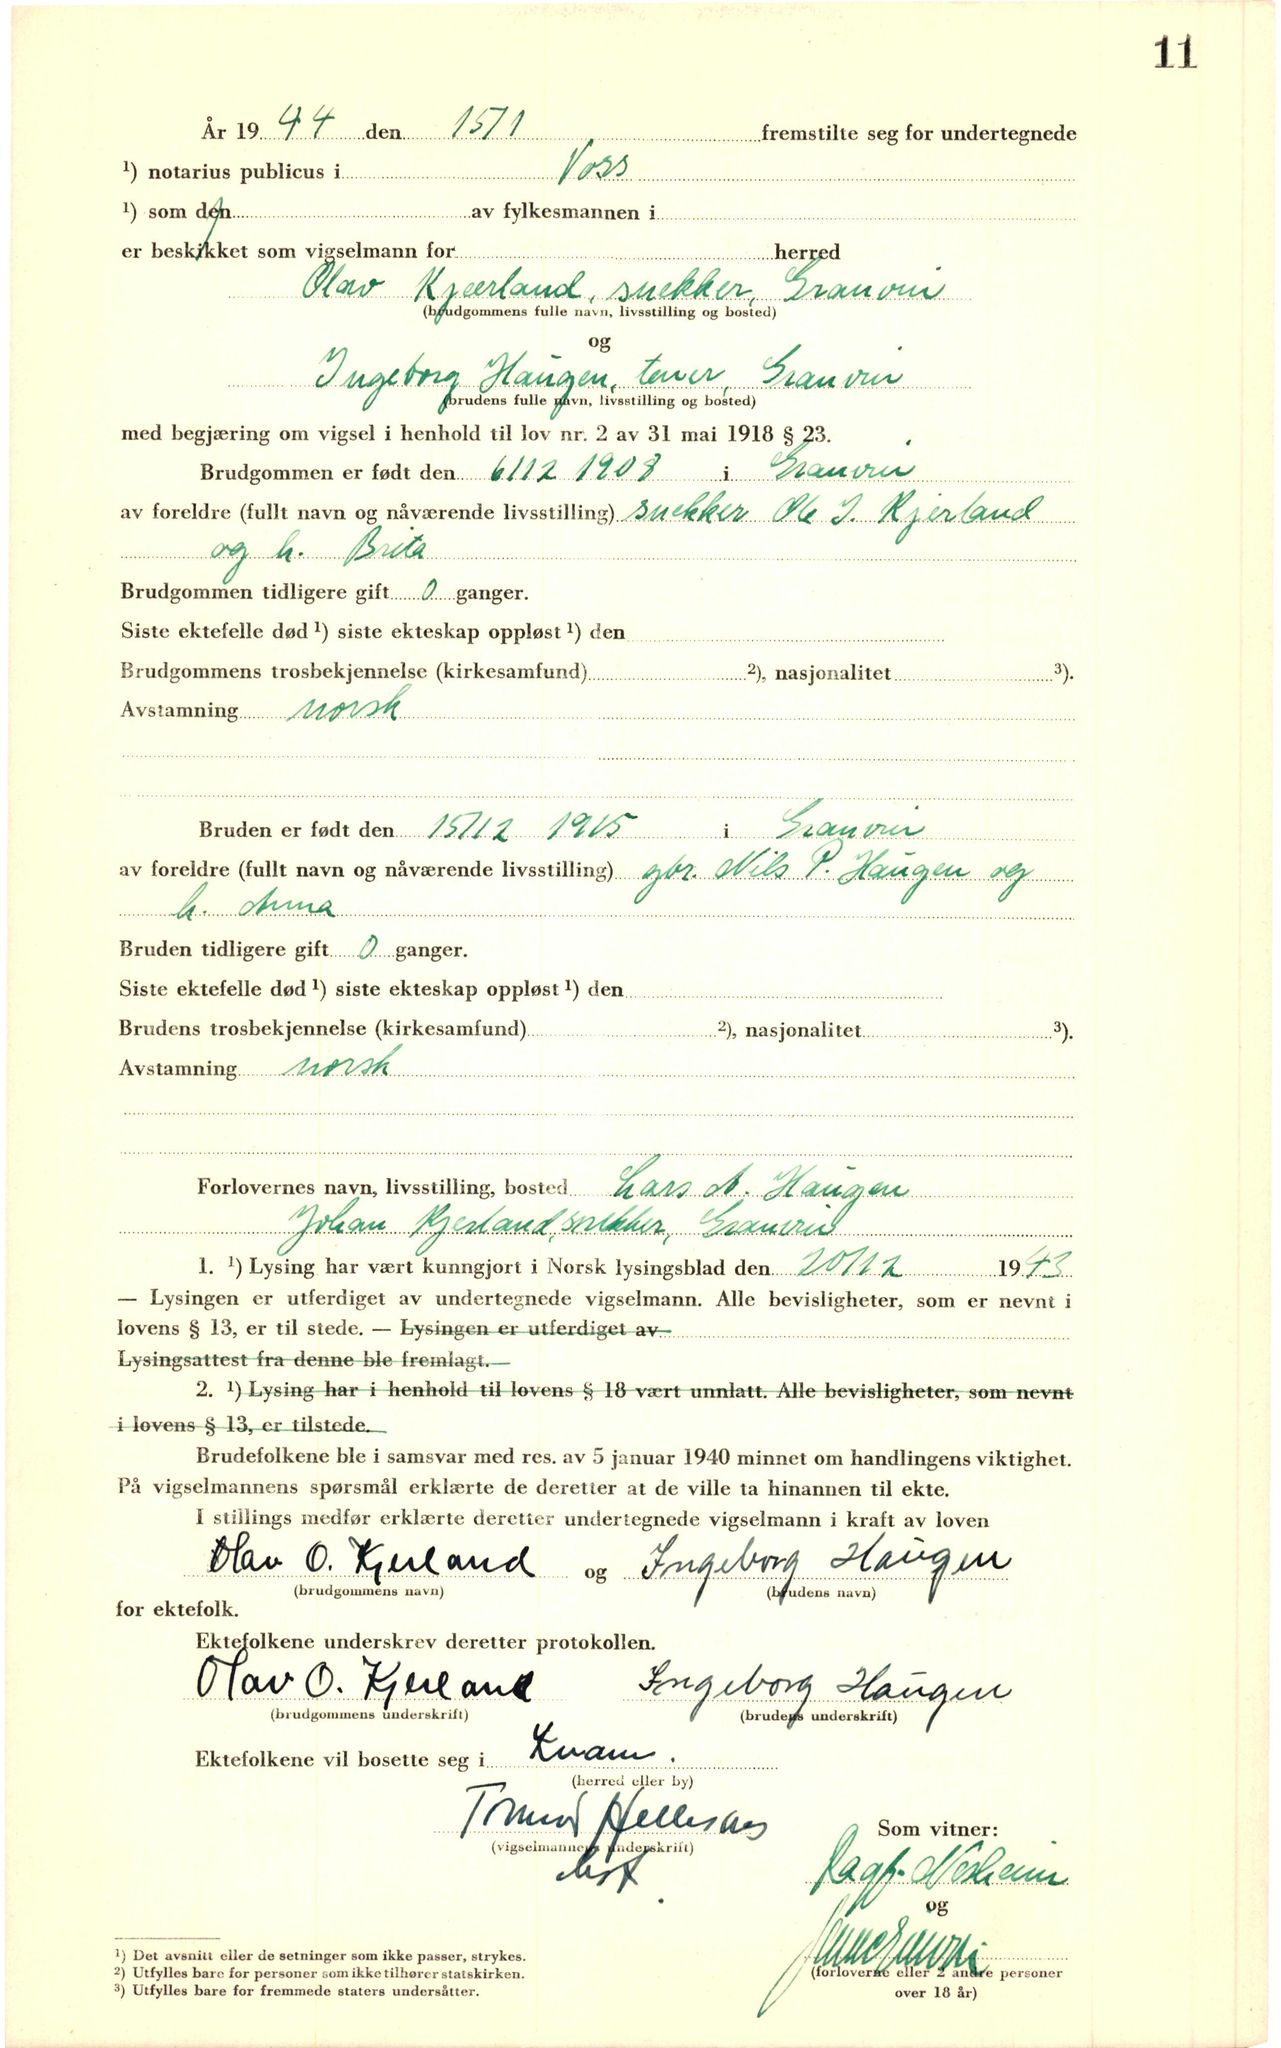 11
År 19 44 den 15/1 fremstilte seg for undertegnede
1) notarius publicus i Voss
1) som den av fylkesmannen i
er beskikket som vigselmann for herred
Olav Kjærland, snekker, Granvin
(brudgommens fulle navn, livsstilling og bosted)
og
Ingeborg Haugen, tener, Granvin
(brudens fulle navn, livsstilling og bosted)
med begjæring om vigsel i henhold til lov nr. 2 av 31 mai 1918 § 23.
Brudgommen er født den 6/12 1908 i Granvin
av foreldre (fullt navn og nåværende livsstilling) snekker Ole J. Kjerland
og h. Brita
Brudgommen tidligere gift 0 ganger.
Siste ektefelle død 1) siste ekteskap oppløst 1) den
Brudgommens trosbekjennelse (kirkesamfund) 2), nasjonalitet 3).
Avstamning norsk
Bruden er født den 15/12 1915 i Granvin
av foreldre (fullt navn og nåværende livsstilling) gbr. Nils P. Haugen og
h. Anna
Bruden tidligere gift 0 ganger.
Siste ektefelle død 1) siste ekteskap oppløst 1) den
Brudens trosbekjennelse (kirkesamfund) 2), nasjonalitet 3).
Avstamning norsk
Forlovernes navn, livsstilling, bosted Lars A. Haugen
Johan Kjerland, snekker, Granvin
1. 1) Lysing har vært kunngjort i Norsk lysingsblad den 20/12 1943
— Lysingen er utferdiget av undertegnede vigselmann. Alle bevisligheter, som er nevnt i
lovens § 13, er til stede. — Lysingen er utferdiget av
Lysingsattest fra denne ble fremlagt. —
2. 1) Lysing har i henhold til lovens § 18 vært unnlatt. Alle bevisligheter, som nevnt
i lovens § 13, er tilstede.
Brudefolkene ble i samsvar med res. av 5 januar 1940 minnet om handlingens viktighet.
På vigselmannens spørsmål erklærte de deretter at de ville ta hinannen til ekte.
I stillings medfør erklærte deretter undertegnede vigselmann i kraft av loven
Olav O. Kjerland og Ingeborg Haugen
(brudgommens navn) (brudens navn)
for ektefolk.
Ektefolkene underskrev deretter protokollen.
Olav O. Kjerland Ingeborg Haugen
(brudgommens underskrift) (brudens underskrift)
Ektefolkene vil bosette seg i Kvam.
(herred eller by)
Hellesnes
(vigselmannens underskrift)
Som vitner:
Ragfr. Nesheim
og
(forloverne eller 2 andre personer
over 18 år)
1) Det avsnitt eller de setninger som ikke passer, strykes.
2) Utfylles bare for personer som ikke tilhører statskirken.
3) Utfylles bare for fremmede staters undersåtter.